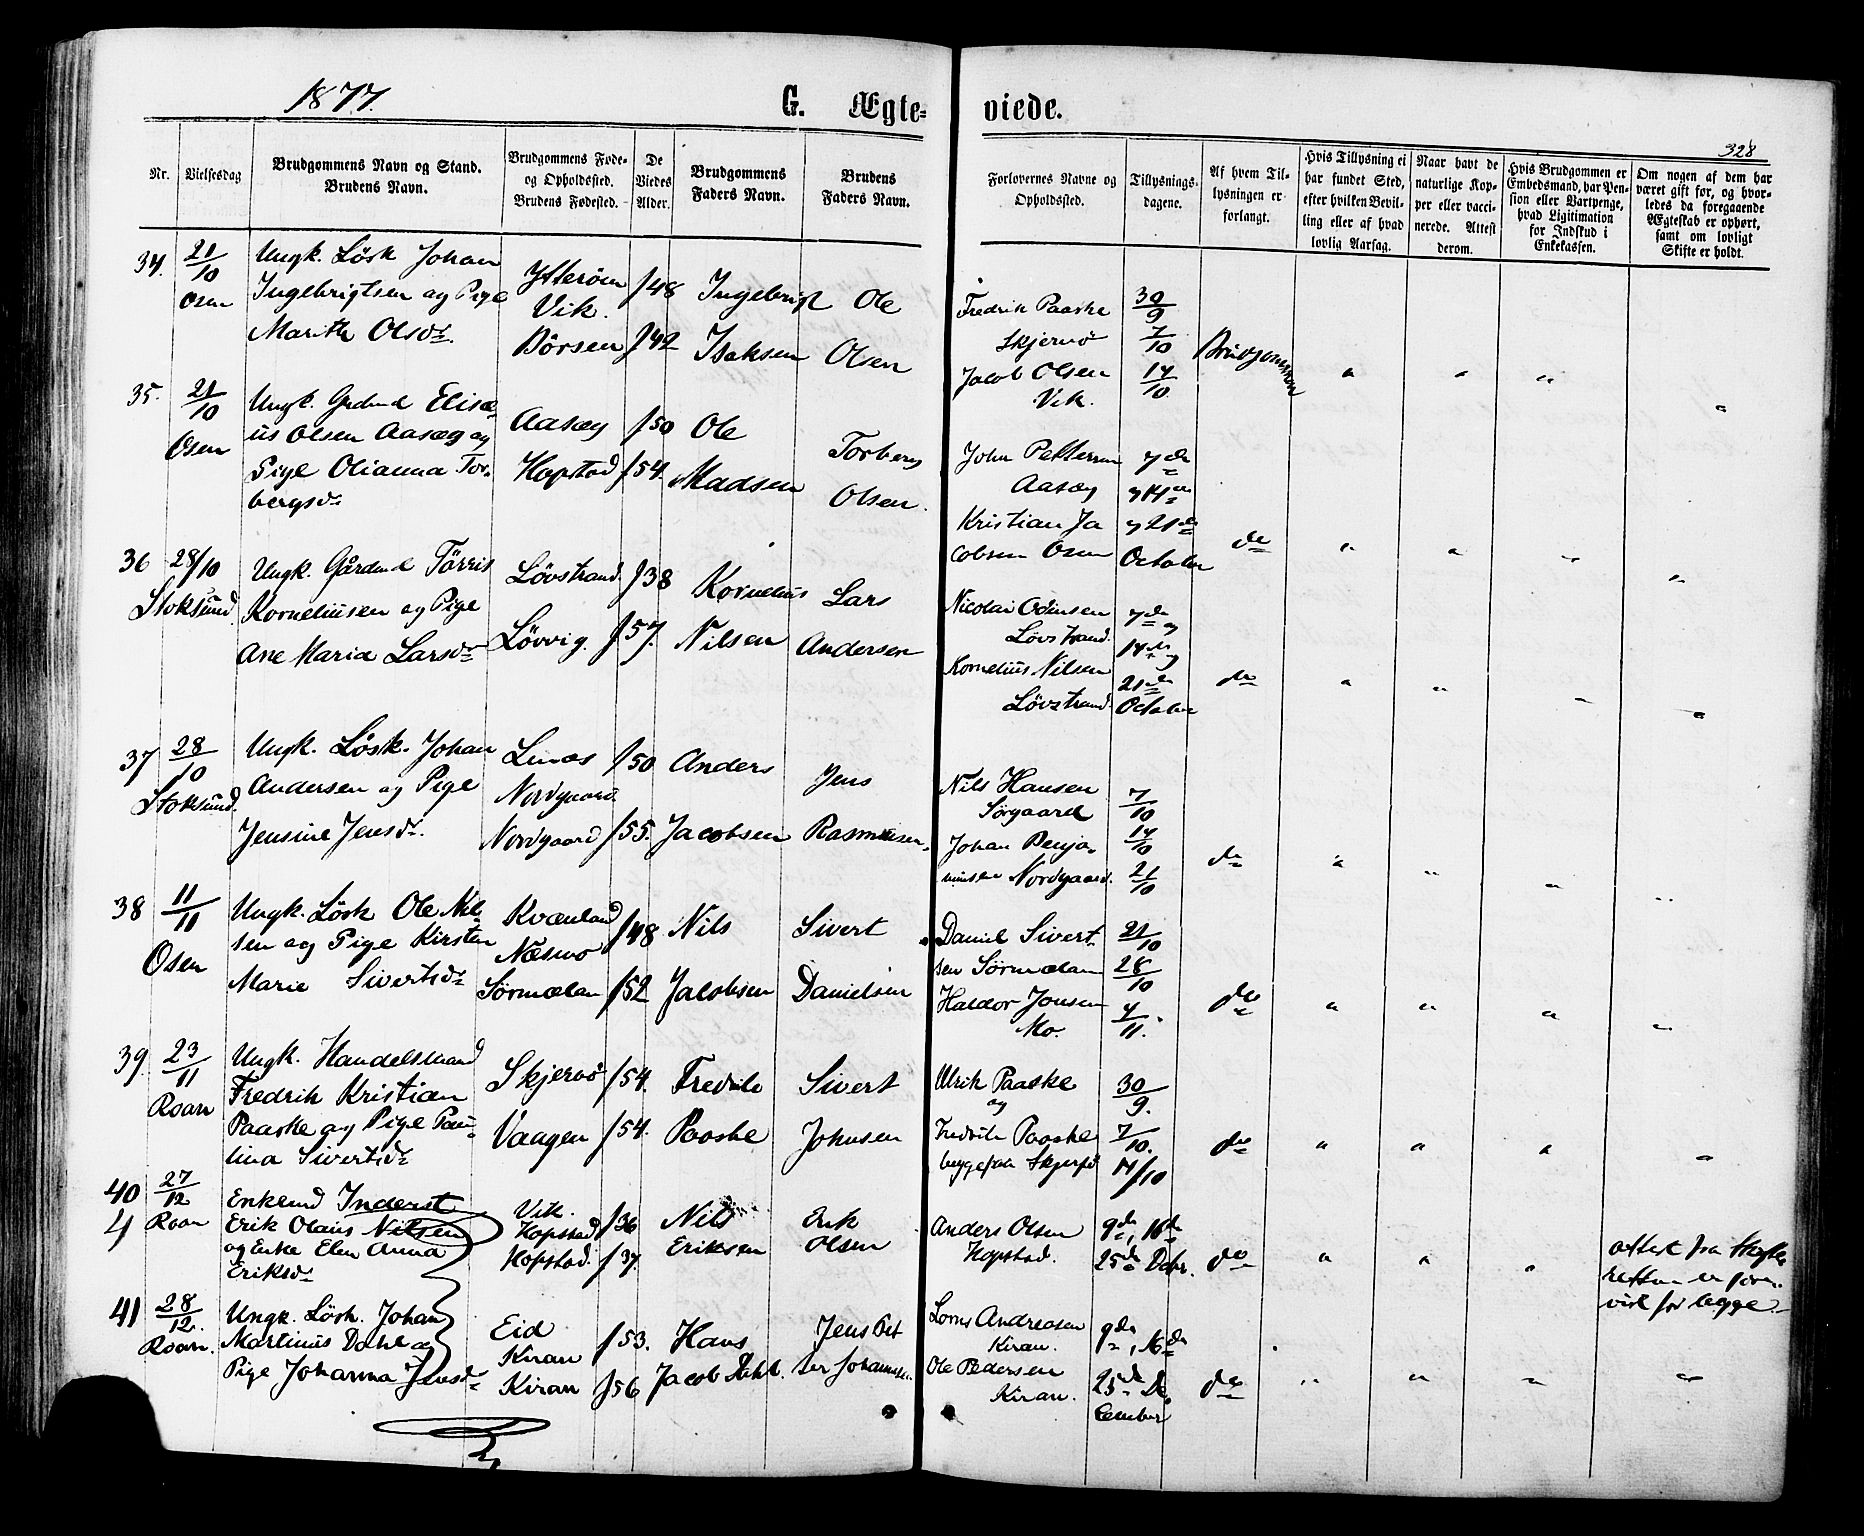 1877.
G. Ægte-
viede.
328
Nr.
Vielsesdag
Brudgommens Navn og Stand.
Brudens Navn.
Brudgommens Føde-
og Opholdssted.
Brudens Fødested.
De
Viedes
Alder.
Brudgommens
Faders Navn.
Brudens
Faders Navn.
Forlovernes Navne og
Opholdssted.
Tillysnings-
dagene.
Af hvem Til-
lysningen er
forlangt.
Hvis Tillysning ei
har fundet Sted,
efter hvilken Bevil-
ling eller af hvad
lovlig Aarsag.
Naar havt de
naturlige Kop-
per eller vacci-
nerede. Attest
derom.
Hvis Brudgommen er
Embedsmand, har Pen-
sion eller Vartpenge,
hvad Ligitimation
for Indskud i
Enkekassen.
Om nogen af dem har
været gift før, og hvor-
ledes da foregaaende
Ægteskab er ophørt,
samt om lovligt
Skifte er holdt.
34.
21/10
Osen
Ungk. Løsk Johan
Ingebrigtsen og Pige
Marith Olsdr
Ytterøen
Vik.
Børsen
f 48
f 42
Ingebrigt
Isaksen
Ole
Olsen
Fredrik Paaske
Skjervø
Jacob Olsen
Vik.
30/9
7/10
14/10
Brudgommen
" " " "
35.
21/10
Osen
Ungk. Grdmd Elisæ-
us Olsen Aasæg og
Pige Olianna Tor-
bergsdr
Aasæg
Hopstad
f 50
f 54.
Ole
Madsen
Torberg
Olsen.
John Pettersen
Aasæg
Kristian Ja
cobsen Osen
7de
og 14de
og 21de
October
do
" " " "
36
28/10
Stoksund.
Ungk. Gårdmd Tørris
Korneliusen og Pige
Ane Maria Larsdr
Løvstrand
Løvvig.
f 38
f 57.
Kornelius
Nilsen
Lars
Andersen
Nicolai Odinsen
Løvstrand.
Kornelius Nilsen
Løvstrand.
7de og
14de og
21de
October
do
" " " "
37
28/10
Stoksund.
Ungk. Løsk. Johan
Andersen og Pige
Jensine Jensdr.
Linæs
Nordgaard.
Nordgaard
f 50
f 55.
Anders
Jacobsen
Jens
Rasmussen.
Nils Hansen
Sørgaard
Johan Benja-
minsen Nordgaard.
7/10
14/10
21/10
do
" " " "
38
11/11
Osen
Ungk. Løsk Ole Nil-
sen og Pige Kirsten
Marie Sivertsdr
Kvænland
Næsmo
Sørmælan
f 48
f 52
Nils
Jacobsen
Sivert
Danielsen
Daniel Sivert-
sen Sørmælan
Haldor Jonsen
Mo.
21/10
28/10
4/11.
do
" " " "
39.
23/11
Roan
Ungk. Handelsmand
Fredrik Kristian
Paaske og Pige Pau-
lina Sivertsdr
Skjervø
Vaagen
f 54.
f 54.
Fredrik
Paaske
Sivert
Johnsen
Ulrik Paaske
og
Fredrik Paaske
begge paa Skjervø
30/9.
7/10.
14/10
do
" " " "
40
4
27/12
Roan
Enkemd Inderst
Erik Olaus Nilsen
og Enke Elen Anna
Eriksdr
Vik.
Hopstad
Hopstad.
f 36
f 37.
Nils
Eriksen
Erik
Olsen
Anders Olsen
Hopstad.
9de, 16de
25de Debr.
do
" " "
attest fra Skifte-
retten er fore-
vist for begge.
41
28/12.
Roan.
Ungk. Løsk. Johan
Martinus Dahl og
Pige Johanna Jensdr
Eid
Kiran
Kiran
f 53.
f 56
Hans
Jacob Dahl.
Jens Pet
ter Johannesen.
Lorns Andreasen
Kiran.
Ole Pedersen
Kiran.
9de, 16de
25de De
cember
do
" " " "